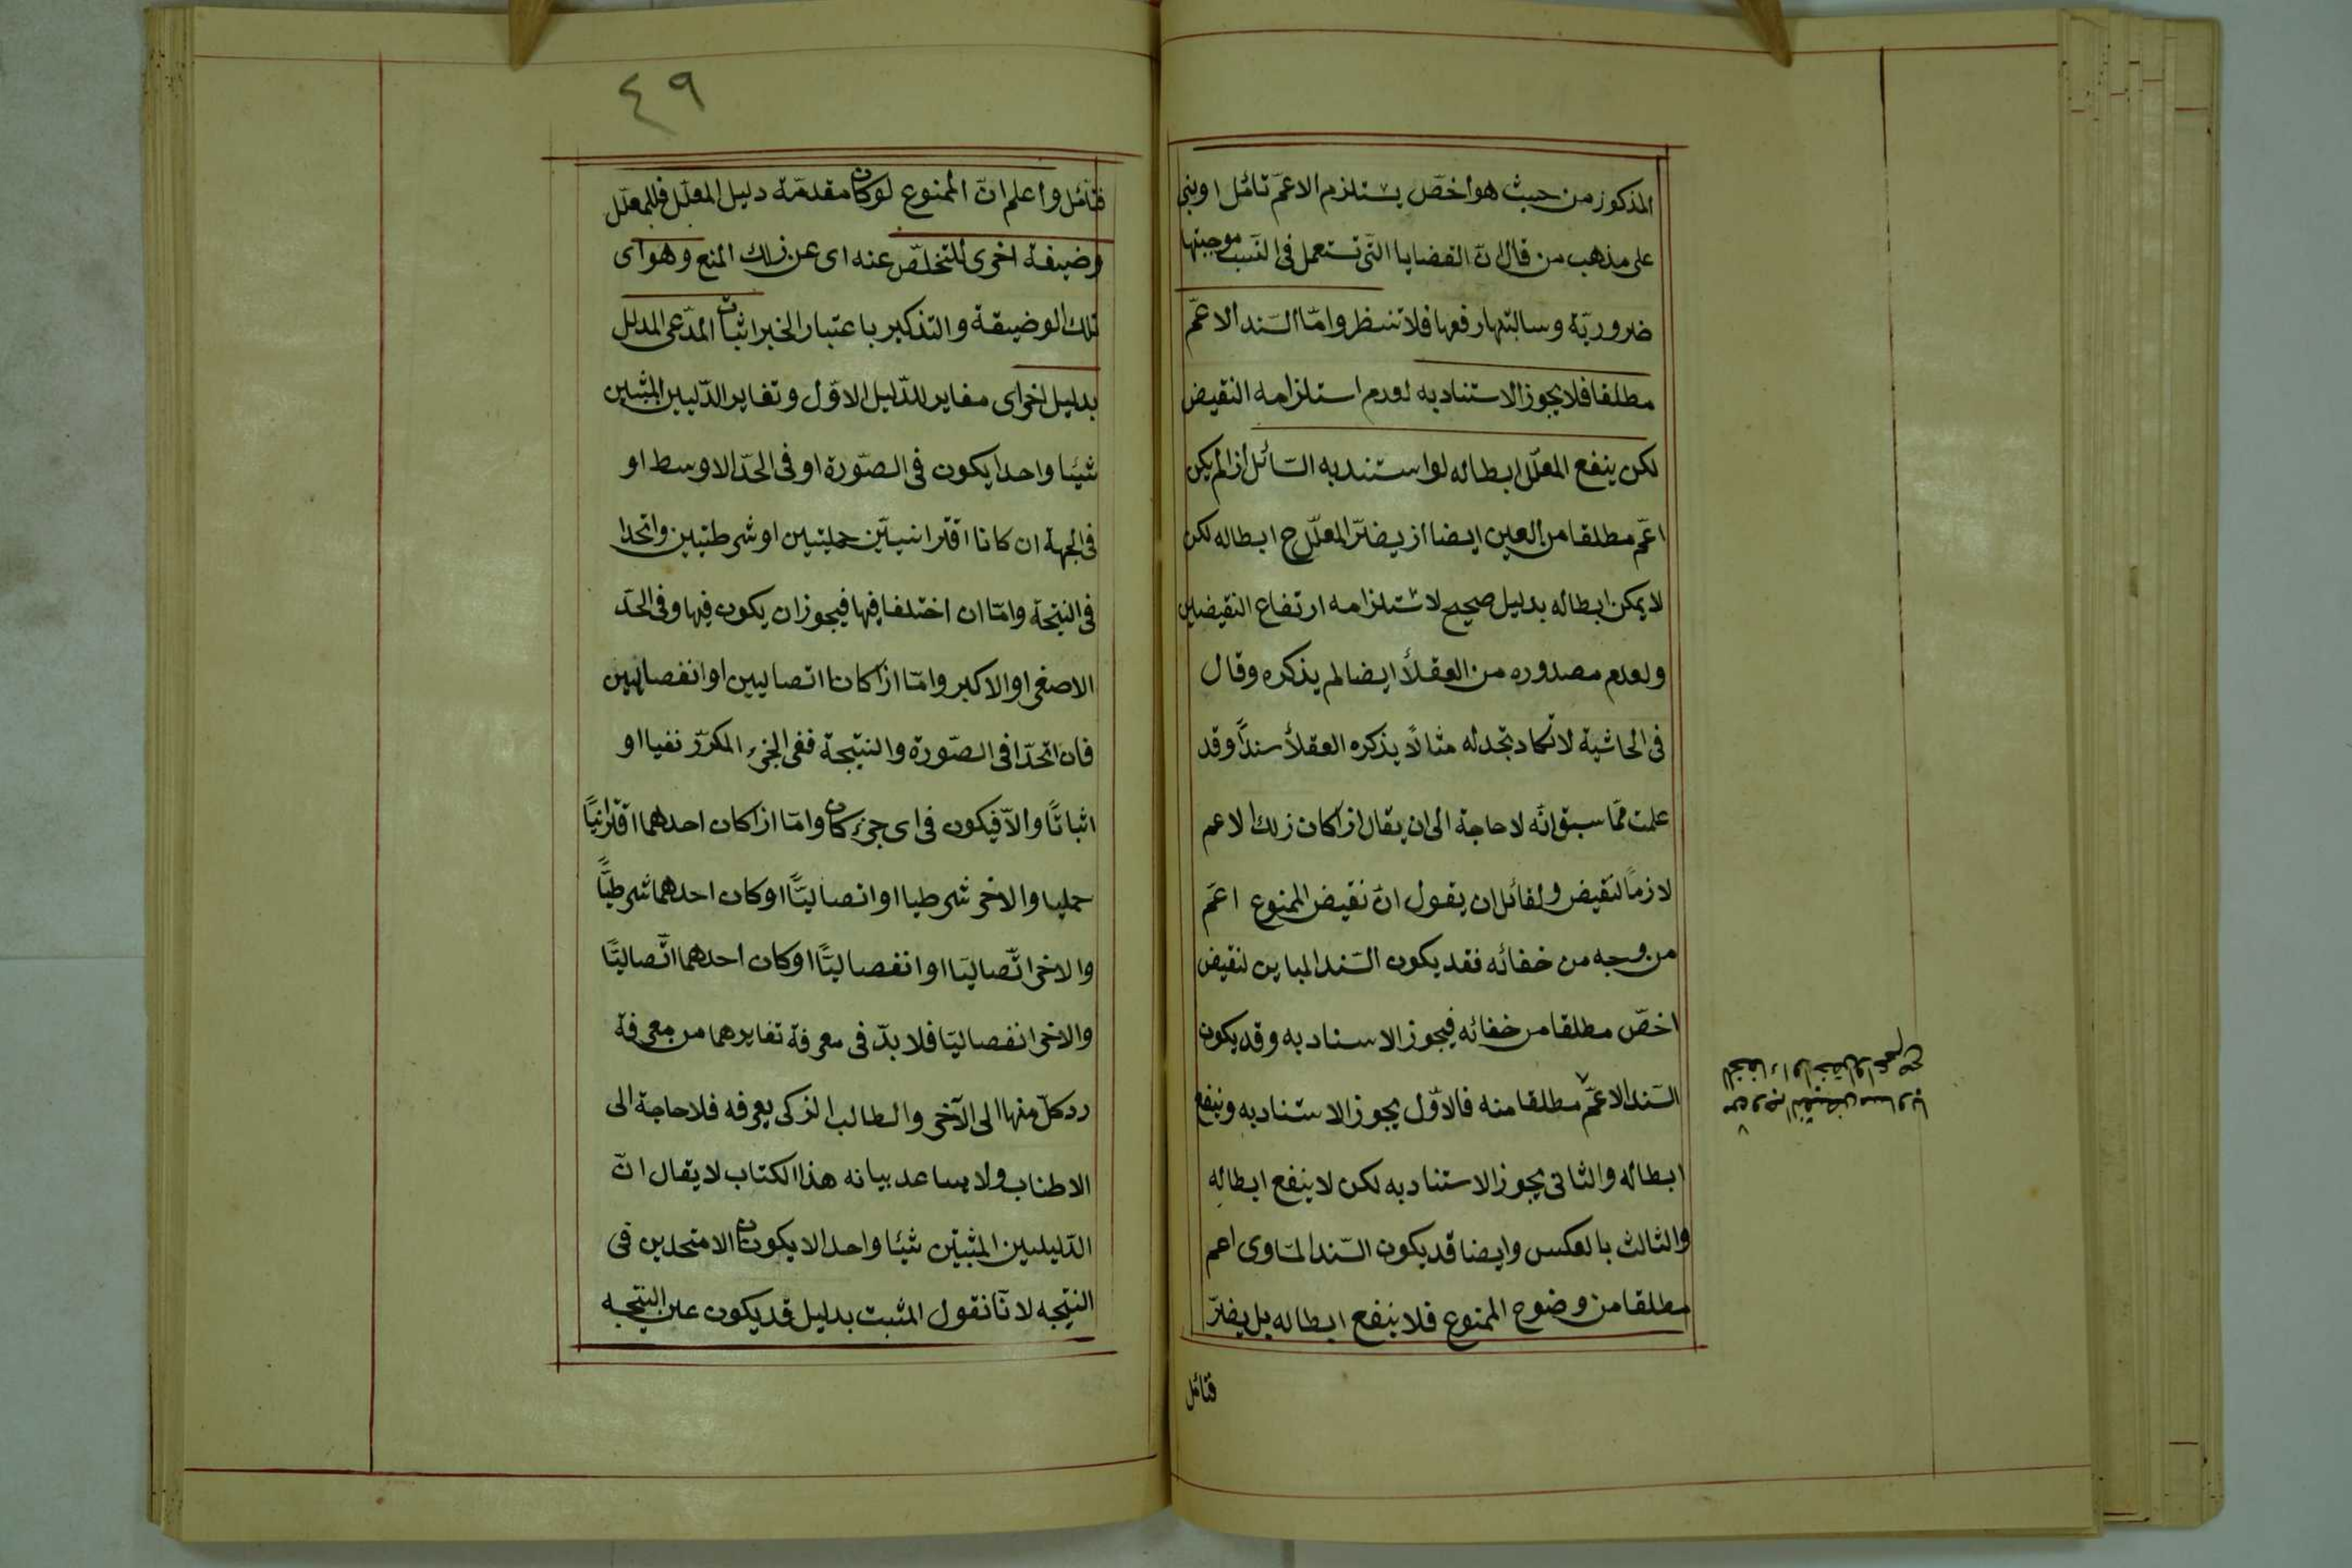 المذكور من حيث هو اخصّ يستلزم الاعمّ تأمّل او بنى
على مذهب من قال انّ القضايا الّتى تستعمل فى النسب موجبتها
ضروريّة وسالبتها رفعها فلا تنتظر وامّا السّند الاعمّ
مطلقا فلا يجوز الاستناد به لعدم استلزامه النقيض
لكن ينفع المعلّل ابطاله لو استند به السّائل اذا لم يكن
اعمّ مطلقا من العين ايضا اذ يضرّ المعلّل ح ابطاله لكن
لا يمكن ابطاله بدليل صحيح لاستلزامه ارتفاع النقيضين
ولعدم مصدوره من العقلأ ايضا لم يذكره وقال
فى الحاشية لا تكاد تجد له مثالاً يذكره العقلأ سنداً وقد
علمت ممّا سبق انّه لا حاجة الى ان يقال اذا كان ذلك الاعم
لازماً لنقيض ولقائل ان يقول انّ نقيض الممنوع اعمّ
من وجه من خفائه فقد يكون السّند المباين لنقيض
اخصّ مطلقا من خفائه فيجوز الاسناد به وقد يكون
السّند الاعمّ مطلقا منه فالاوّل يجوز الاستناد به وينفع
ابطاله والثانى يجوز الاستناد به لكن لا ينفع ابطاله
والثالث بالعكس وايضا قد يكون السّند المساوى اعم
مطلقا من وضوح الممنوع فلا ينفع ابطاله بل يضرّ
فتأمّل
من وجه النقيض مساويا
٤٩
فتأمّل واعلم انّ الممنوع لو كان مقدمّة دليل المعلّل فللمعلّل
وضيفة اخرى للتخلّص عنه اى عن ذلك المنع وهو اى
تلك الوضيفة والتذكير باعتبار الخبر اثبات المدّعى المدلل
بدليل اخر اى مغاير للدّليل الاوّل وتغاير الدّليلين المثبتين
شيئا واحدا يكون فى الصّورة او فى الحدّ الاوسط او
فى الجهة ان كانا اقترانييّن حمليّين او شرطيّين واتّحدا
فى النتيجة وامّا ان اختلفا فيها فيجوز ان يكون فيها وفى الحدّ
الاصغر او الاكبر وامّا اذا كانا اتصاليين او انفصاليين
فان اتّحدا فى الصّورة والنتيجة ففى الجزء المكرّر نفيا او
اثباتًا والّا فيكون فى اى جزء كان وامّا اذا كان احدهما اقترانيًّا
حمليا والاخر شرطيا او اتصاليًّا او كان احدهما شرطيًّا
والاخر اتّصاليّا او انفصاليًّا او كان احدهما اتّصاليًّا
والاخر انفصاليّا فلا بدّ فى معرفة تغايرهما من معرفة
ردّ كلّ منها الى الآخر والطالب الذكى يعرفه فلا حاجة الى
الاطناب ولا يساعد بيانه هذا الكتاب لا يقال انّ
الدّليلين المثبتين شيئا واحدا لا يكونان الا متحدين فى
النتيجه لانّا نقول المثبت بدليل قد يكون عين النتيجه